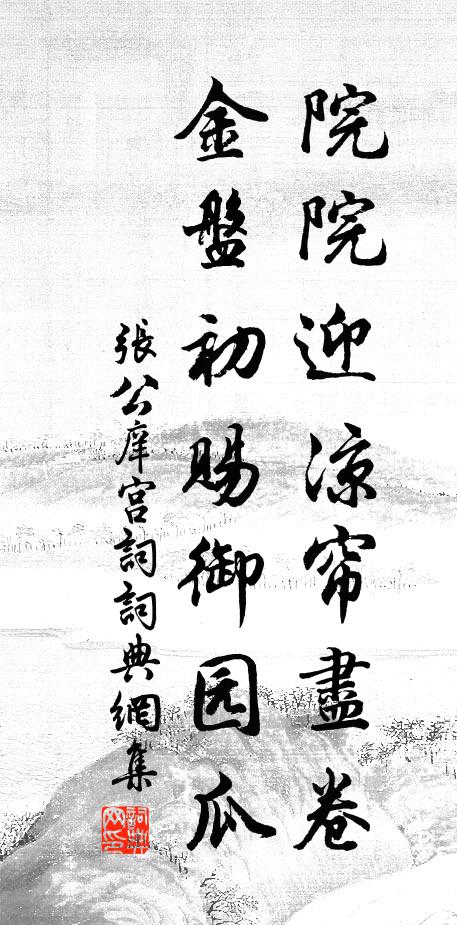 院院迎涼帘盡卷
金盤初賜御园瓜
張公庠宮詞詞典網集
詞典网印